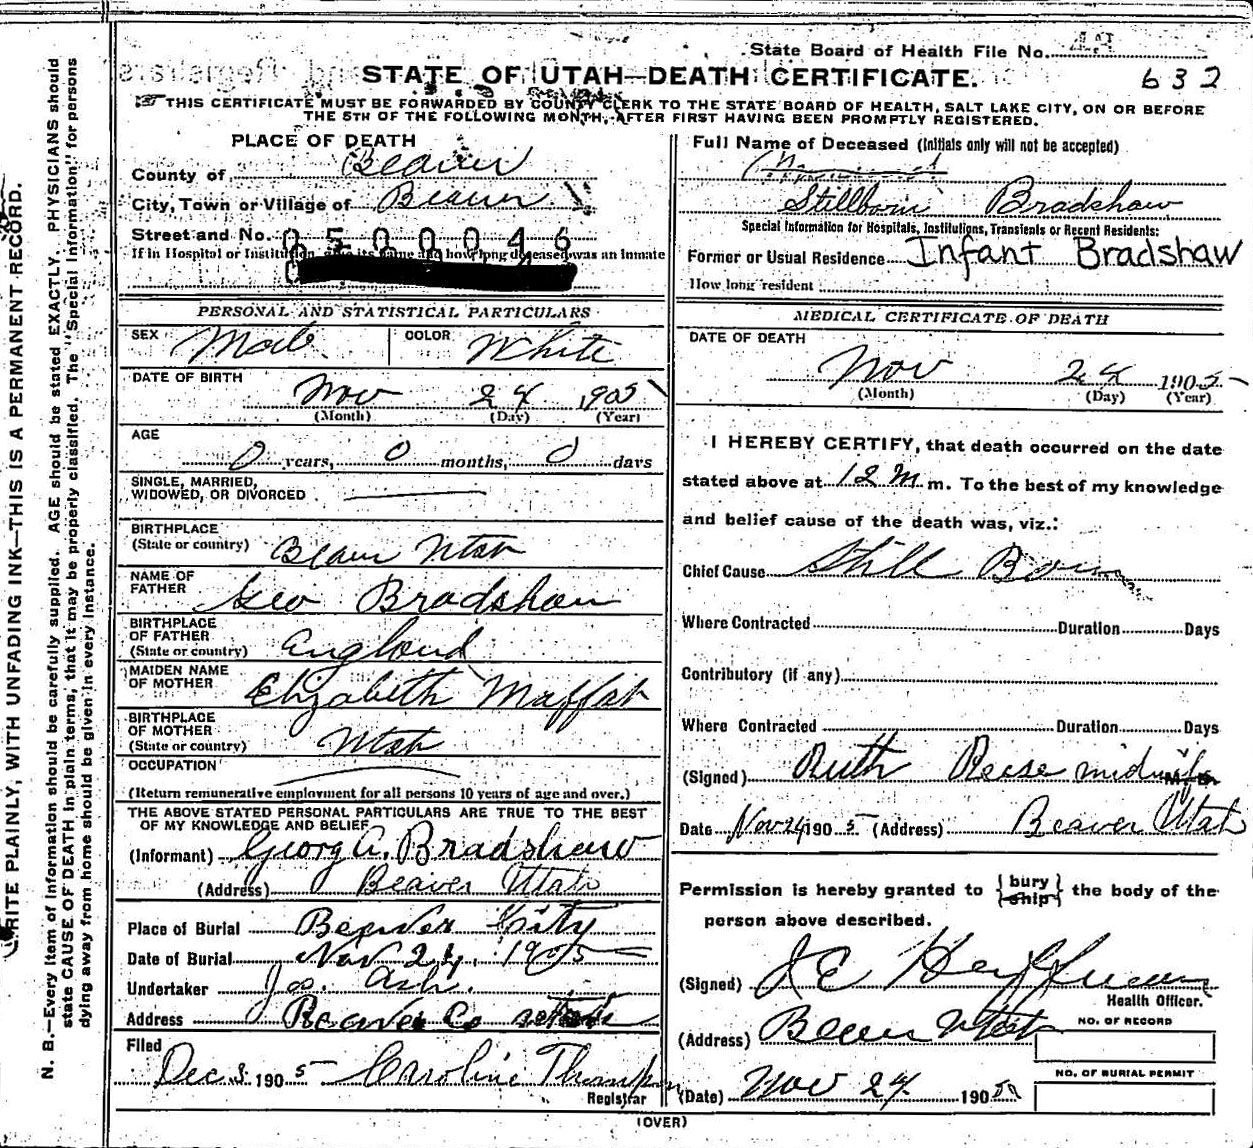 State Board of Health File No.
632
STATE OF UTAH—DEATH CERTIFICATE.
THIS CERTIFICATE MUST BE FORWARDED BY COUNTY CLERK TO THE STATE BOARD OF HEALTH, SALT LAKE CITY, ON OR BEFORE
THE 5TH OF THE FOLLOWING MONTH, AFTER FIRST HAVING BEEN PROMPTLY REGISTERED.
WRITE PLAINLY, WITH UNFADING INK—THIS IS A PERMANENT RECORD.
N. B.—Every item of information should be carefully supplied. AGE should be stated EXACTLY. PHYSICIANS should
state CAUSE OF DEATH in plain terms, that it may be properly classified. The "Special Information" for persons
dying away from home should be given in every instance.
PLACE OF DEATH
County of Beaver
City, Town or Village of Beaver
Street and No. 0500046
If in Hospital or Institution, give its name and how long deceased was an inmate
PERSONAL AND STATISTICAL PARTICULARS
SEX Male COLOR White
DATE OF BIRTH Nov 24 1905
(Month) (Day) (Year)
AGE
0 years, 0 months, 0 days
SINGLE, MARRIED,
WIDOWED, OR DIVORCED
BIRTHPLACE
(State or country) Beaver Utah
NAME OF
FATHER Geo Bradshaw
BIRTHPLACE
OF FATHER
(State or country) England
MAIDEN NAME
OF MOTHER Elizabeth Maffat
BIRTHPLACE
OF MOTHER
(State or country) Utah
OCCUPATION
(Return remunerative employment for all persons 10 years of age and over.)
THE ABOVE STATED PERSONAL PARTICULARS ARE TRUE TO THE BEST
OF MY KNOWLEDGE AND BELIEF
(Informant) Georg A. Bradshaw
(Address) Beaver Utah
Place of Burial Beaver City
Date of Burial Nov 24, 1905
Undertaker Jos. Ash.
Address Beaver Co Utah
Filed
Dec 3 1905 Caroline Thompson
Registrar
Full Name of Deceased (Initials only will not be accepted)
Stillborn Bradshaw
Special Information for Hospitals, Institutions, Transients or Recent Residents:
Former or Usual Residence Infant Bradshaw
How long resident
MEDICAL CERTIFICATE OF DEATH
DATE OF DEATH
Nov 24 1905
(Month) (Day) (Year)
I HEREBY CERTIFY, that death occurred on the date
stated above at 12 M m. To the best of my knowledge
and belief cause of the death was, viz.:
Chief Cause Still Born
Where Contracted Duration Days
Contributory (if any)
Where Contracted Duration Days
(Signed) Ruth Reese midwife
Date Nov 24 1905 (Address) Beaver Utah
Permission is hereby granted to {bury ship} the body of the
person above described.
(Signed) J E
Health Officer.
(Address) Beaver Utah
NO. OF RECORD
NO. OF BURIAL PERMIT
(Date) Nov 24 1905
(OVER)